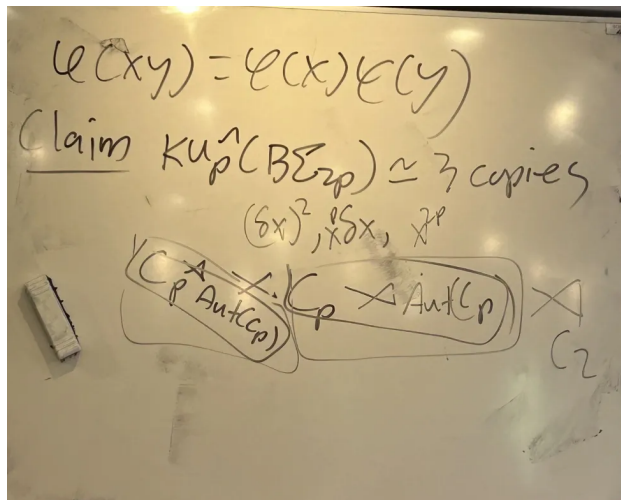 φ(xy) = φ(x)φ(y)
Claim KU_p^(BΣ_2p) ≃ 3 copies
(δx)^2, x^p δx, x^2p
(C_p ⋊ Aut(C_p)) × (C_p ⋊ Aut(C_p)) ⋊ C_2